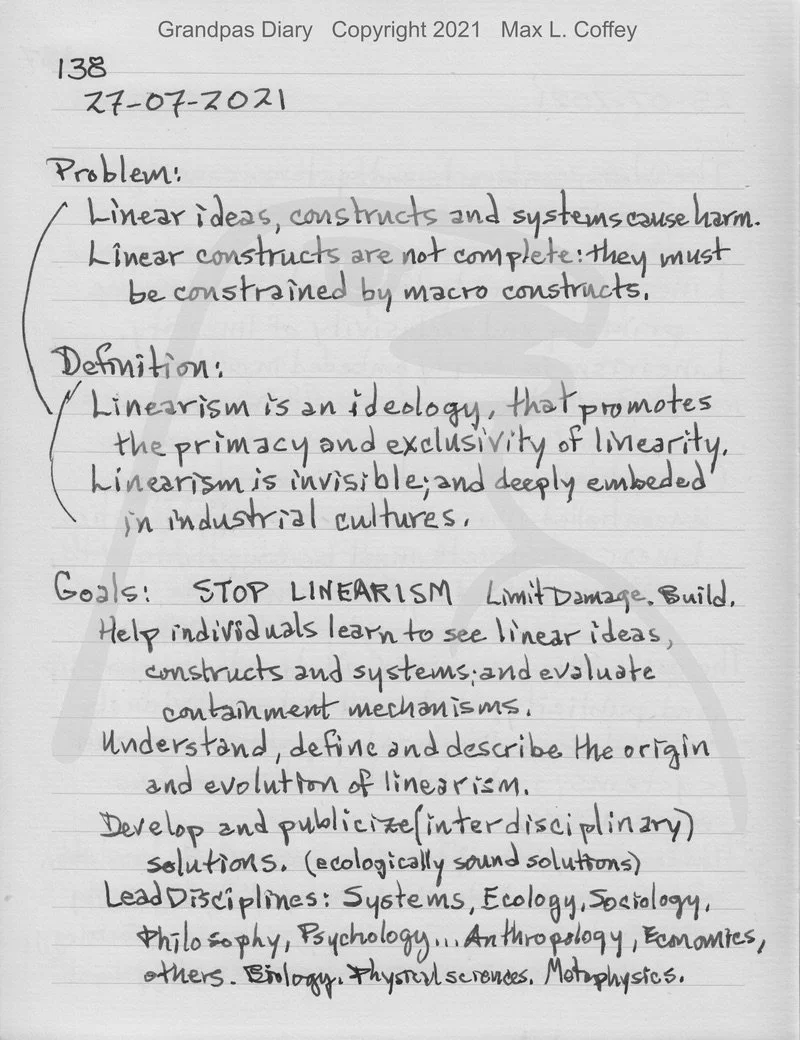 Grandpas Diary Copyright 2021 Max L. Coffey
138
27-07-2021
Problem:
Linear ideas, constructs and systems cause harm.
Linear constructs are not complete: they must
be constrained by macro constructs.
Definition:
Linearism is an ideology, that promotes
the primacy and exclusivity of linearity.
Linearism is invisible; and deeply embeded
in industrial cultures.
Goals: STOP LINEARISM Limit Damage. Build.
Help individuals learn to see linear ideas,
constructs and systems; and evaluate
containment mechanisms.
Understand, define and describe the origin
and evolution of linearism.
Develop and publicize (interdisciplinary)
solutions. (ecologically sound solutions)
Lead Disciplines: Systems, Ecology, Sociology,
Philosophy, Psychology... Anthropology, Economics,
others. Biology. Physical sciences. Metaphysics.